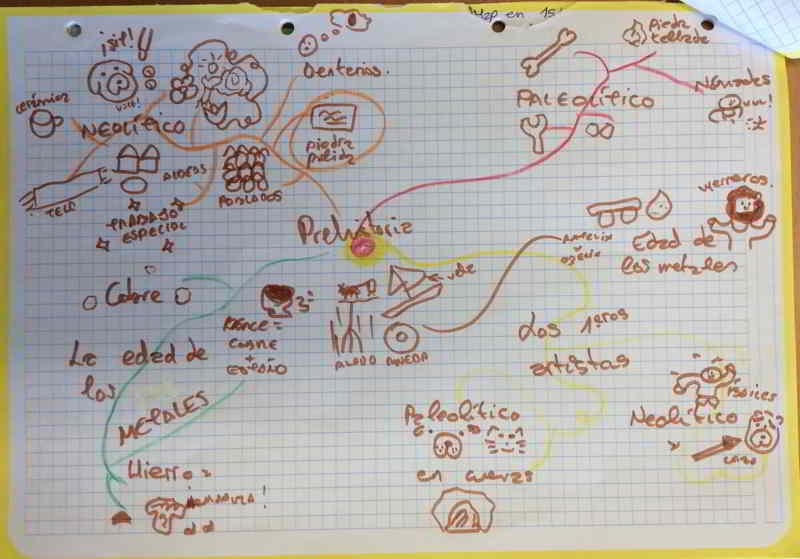 en 15
¡sip!
cerámica
NEOLÍTICO
Denterios.
piedra
pulida
TELA
ALDEAS
POBLADOS
TRABAJO
ESPECIAL
piedra
tallada
PALEOLÍTICO
Nómadas
uuu!
Prehistoria
Herreros.
Edad de
los metales
vela
ARADO
RUEDA
Cobre
BRONCE =
COBRE
+
ESTAÑO
La edad de
los
METALES
Hierro =
¡ARMADURA!
Los 1ºros
artistas
Paleolítico
en cuevas
Neolítico
CAZA